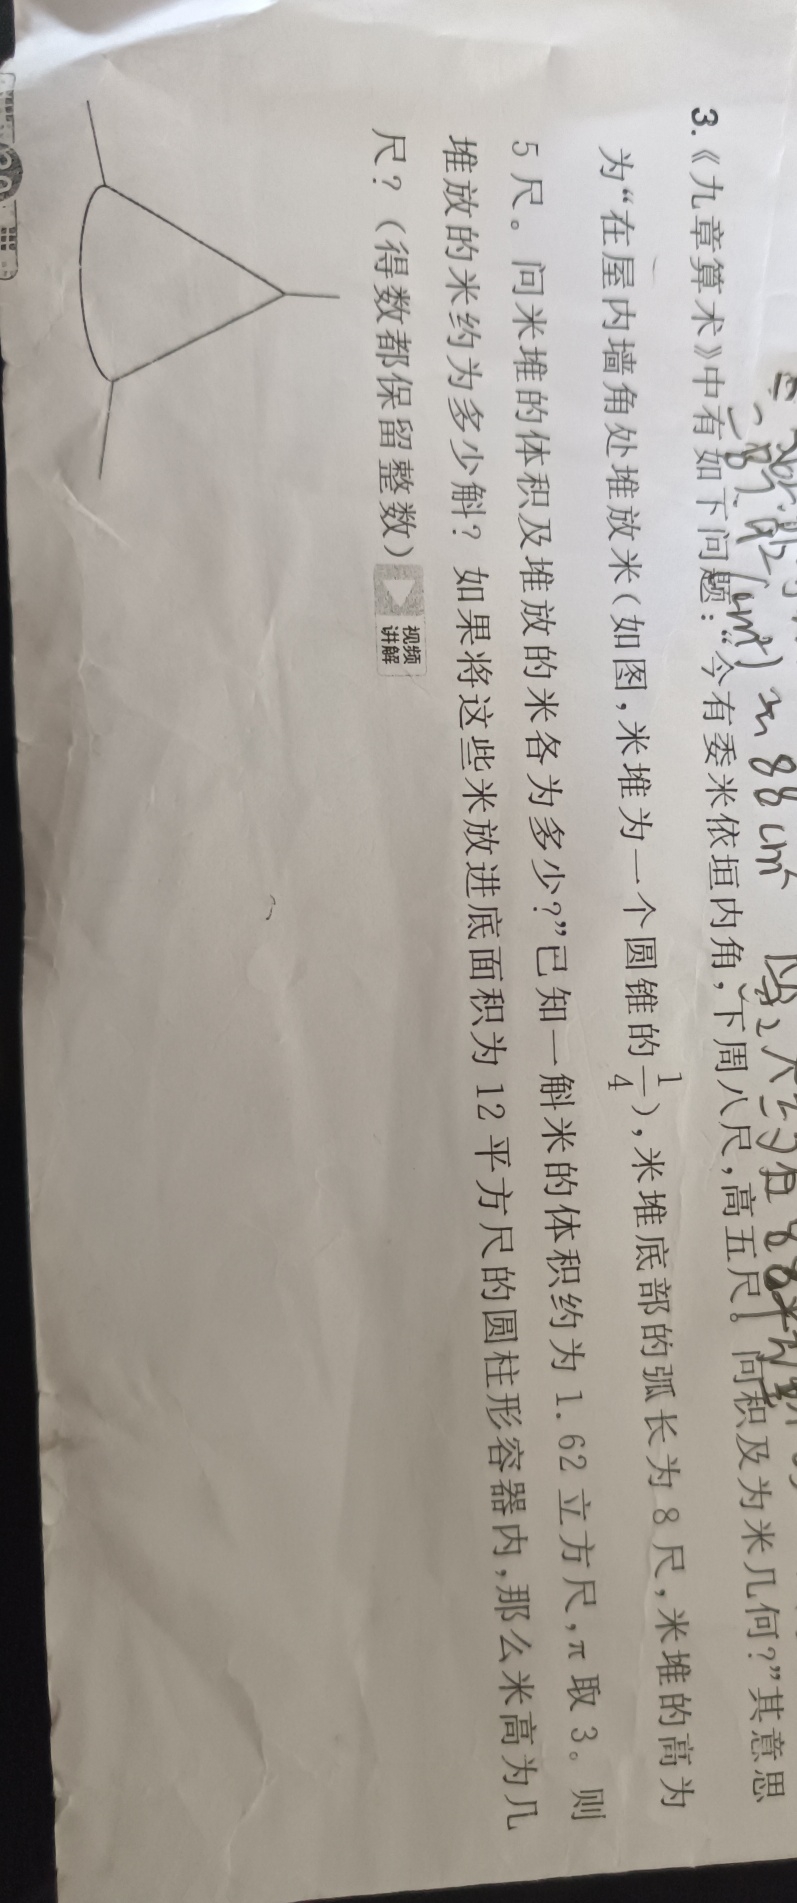 3.《九章算术》中有如下问题：“今有委米依垣内角，下周八尺，高五尺。问积及为米几何？”其意思
为“在屋内墙角处堆放米（如图，米堆为一个圆锥的1/4），米堆底部的弧长为8尺，米堆的高为
5尺。问米堆的体积及堆放的米各为多少？”已知一斛米的体积约为1.62立方尺，π取3。则
堆放的米约为多少斛？如果将这些米放进底面积为12平方尺的圆柱形容器内，那么米高为几
尺？（得数都保留整数）
视频
讲解